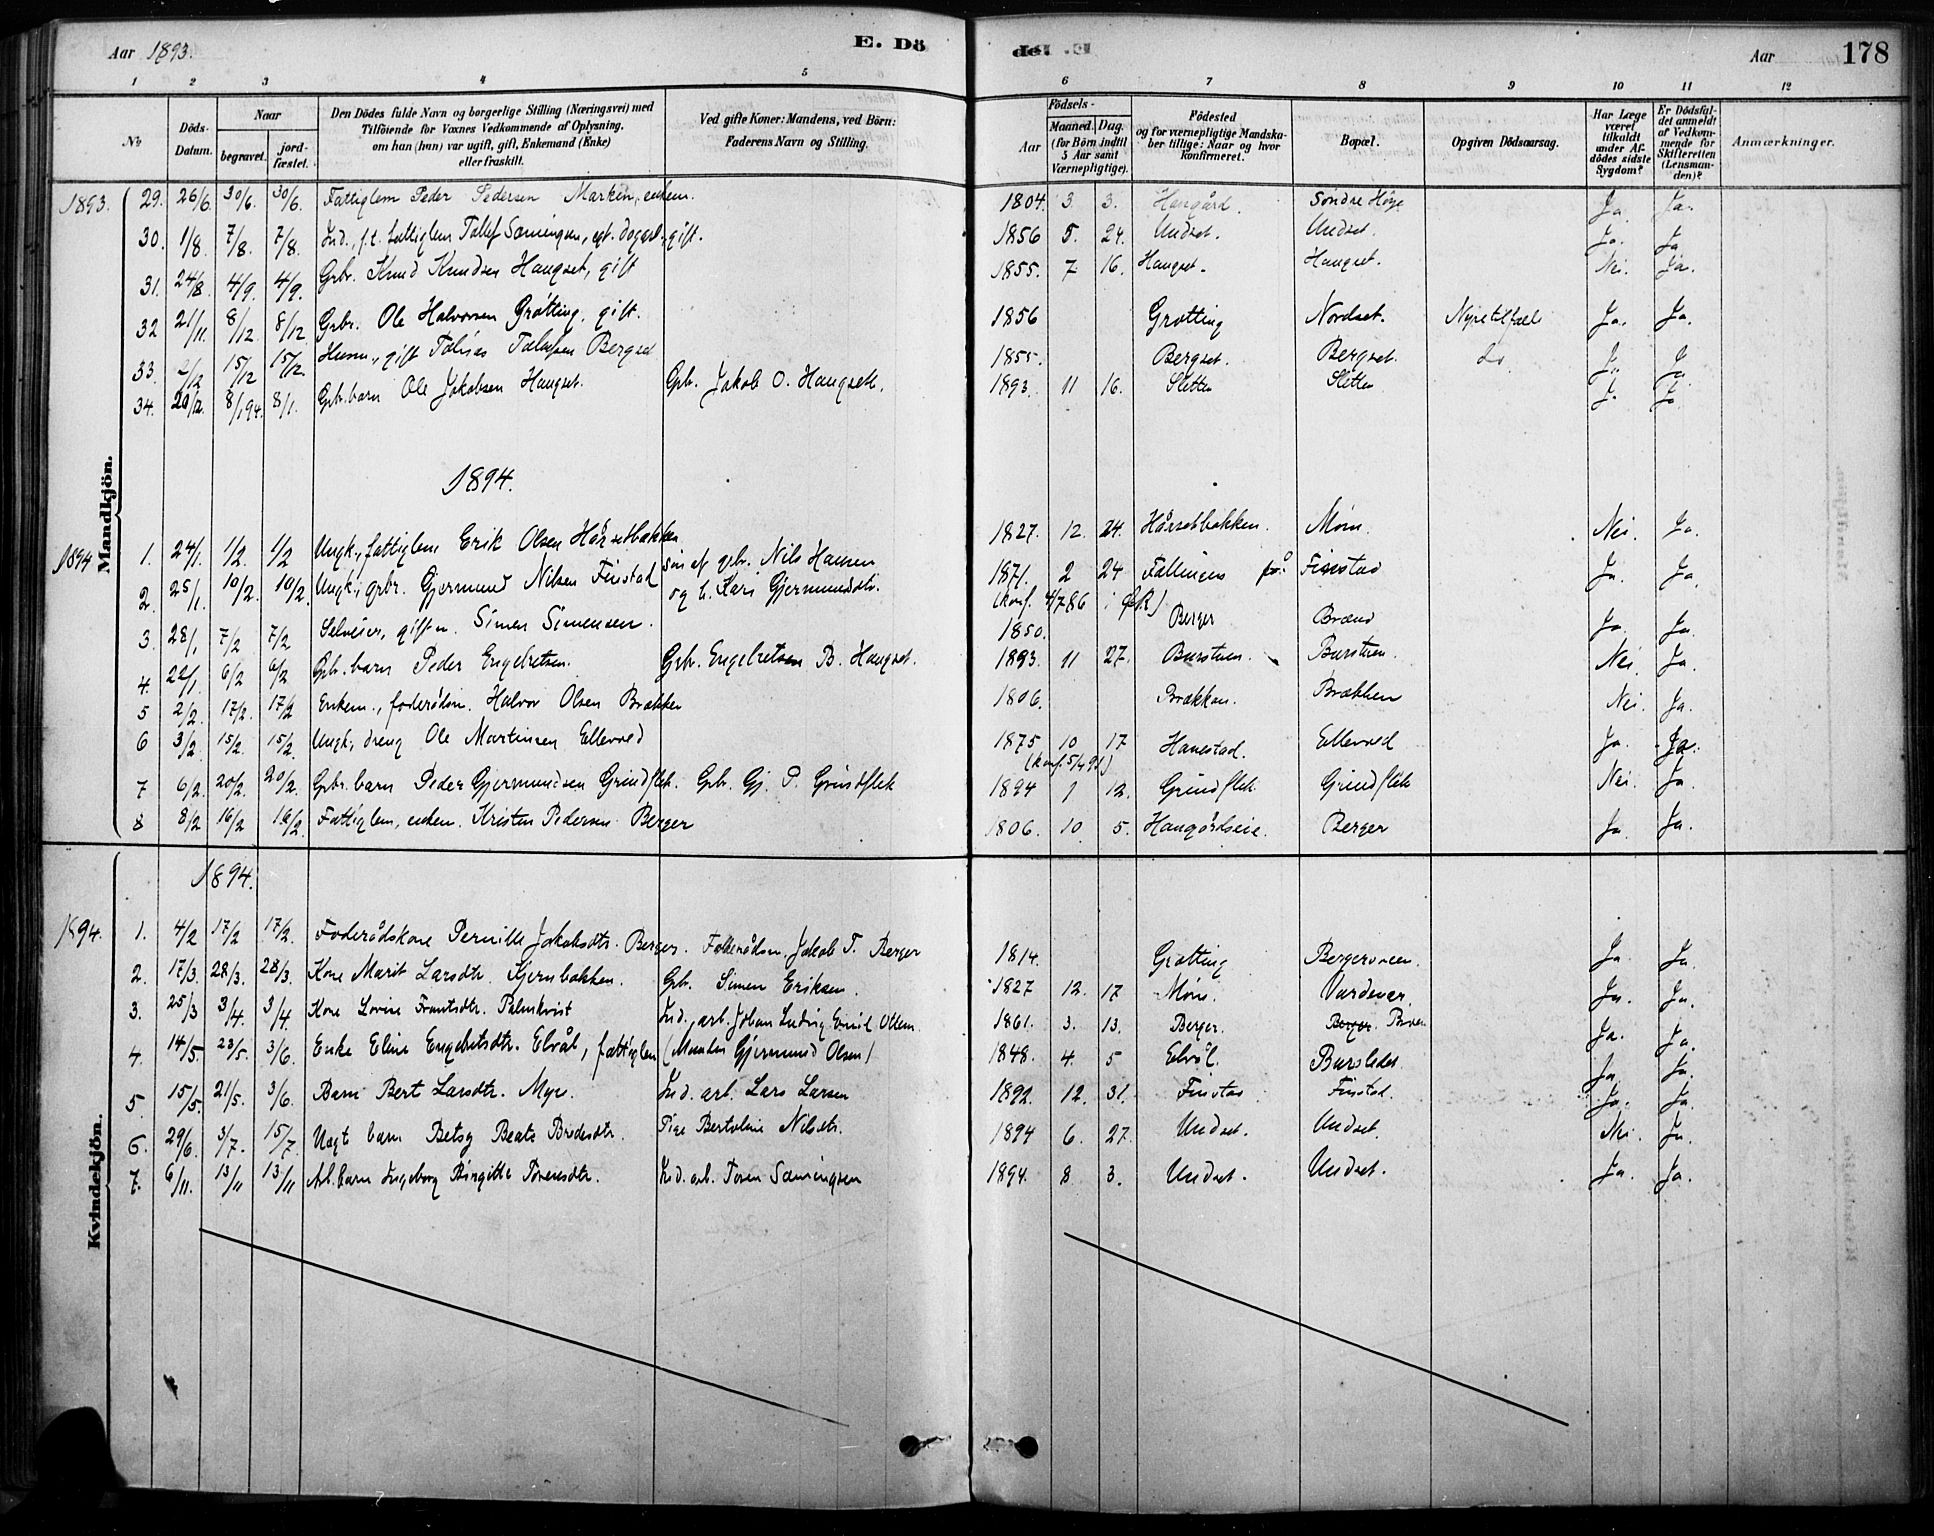 Aar 1893. E. Dö
de. E. Aar 178
1 2 3 4 5 6 7 8 9 10 11 12
No
Döds-Datum.
Naar
begravet. jordfæstet.
Den Dödes fulde Navn og borgerlige Stilling (Næringsvei) med
Tilföiende for Voxnes Vedkommende af Oplysning.
om han (hun) var ugift, gift, Enkemand (Enke)
eller fraskilt.
Ved gifte Koner: Mandens, ved Börn:
Faderens Navn og Stilling.
Födsels-
Aar Maaned. Dag.
(for Börn indtil
5 Aar samt
Værnepligtige).
Födested
og for værnepligtige Mandskaber tillige: Naar og hvor
konfirmeret.
Bopæl.
Opgiven Dödsaarsag.
Har Læge
været
tilkaldt
under Afdödes sidste
Sygdom?
Er Dödsfaldet anmeldt
af Vedkommende for
Skifteretten
(Lensmanden)?
Anmærkninger.
Mandkjön.
1893. 29. 26/6. 30/6. 30/6. Fattiglem Peder Pedersen Marken, enkem. 1804. 3 3. Haugård. Søndre Høye Ja. Ja.
30. 1/8 7/8. 7/8. Ind., f.t. fattiglem Tollef Sæmingsen, gift. 1856 5. 24. Undset. Undset. Ja. Ja
31. 24/8. 4/9. 4/9. Grbr. Knud Knudsen Haugset, gift 1855. 7 16. Haugset. Haugset. Nei. Ja.
32 21/11. 8/12 8/12 Grbr. Ole Halvorsen Grøtting, gift. 1856 Grøtting Nordset. Nyretilfælde Ja. Ja.
33. /12 15/12 15/12. Husm., gift Bergset 1855. Bergset. Bergset. do Ja. Ja
34. 20/12. 8/1 94. 8/1. Grbr. barn Ole Jakobsen Haugset. Grbr. Jakob O. Haugseth. 1893. 11 16. Sletten Sletten Ja Ja
1894.
1894 1. 24/1. 1/2. 1/2 Ungk., fattiglem Erik Olsen Hårsetbakken 1827. 12. 24. Hårsetbakken. Moen. Nei. Ja.
2. 25/1. 10/2. 10/2. Ungk., grbr. Gjermund Nilsen Finstad søn af grbr. Nils Hansen 1871. 2 24 Fallinges på Finstad Ja. Ja.
og h. Kari Gjermundsdtr. (konf. 4/7 86 i )
3. 28/1 7/2 7/2 Selveier, gift m. Simen Simensen. 1850. Berger Brænd Ja. Ja.
4. 22/1. 6/2 6/2 Grbr. barn Peder Engebretsen. Grbr. Engebretsen B. Haugset. 1893. 11 27. Burstuen. Burstuen. Nei. Ja.
5 2/2. 17/2. 17/2 Enkem., føderådsm. Halvor Olsen Brækken 1806. Brækken. Brækken Nei. Ja.
6 3/2. 15/2. 15/2. Ungk, dreng Ole Martinsen Ellevold 1875 10 17 Hanestad. Ellevold Ja. Ja.
(konf. 5/4 91)
7 6/2. 20/2. 20/2. Grbr. barn Peder Gjermundsen Grindflek. Grbr. Gj. P. Grindflek 1894 1 12. Grindflek Grindflek Nei. Ja.
8 8/2 16/2 16/2. Fattiglem, enkem. Kristen Pedersen Berger 1806. 10 5. Haugårdseie. Berger Ja. Ja.
Kvindekjön.
1894.
1894. 1. 4/2 17/2 17/2. Foderådskone Pernille Jakobsdtr. Berger. Foderådsm. Jakob T. Berger 1814. Grøtting Bergerveen. Ja. Ja.
2. 17/3. 28/3. 28/3. Kone Marit Larsdtr. Kjernbakken. Grb. Simen Eriksen. 1827 12. 17 Moen. Vardevær. Ja. Ja.
3. 25/3 3/4. 3/4. Kone Lovise Frantsdtr. Palmkvist Ind., arb. Johan Ludvig Emil Olsen. 1861. 3. 13. Berger. Berger. Ja. Ja.
4. 14/5. 23/5. 3/6. Enke Eline Engebretsdtr. Elvål, fattiglem (Manden Gjermund Olsen) 1848. 4. 5 Elvål. Ja Ja.
5. 15/5. 21/5. 3/6. Barn Bert Larsdtr. Myr. Ind. arb. Lars Larsen 1892. 12. 31. Finstad. Finstad. Ja. Ja.
6. 29/6. 3/7. 15/7. Uægt barn Betsy Beate Bredesdtr. Pige Bertoline Nilsdtr. 1894 6. 27. Undset. Undset. Nei. Ja.
7. 6/11. 13/11 13/11 Arb. barn Ingeborg Birgitte Toresdtr. Ind. arb. Tore Sæmingsen 1894. 8 3. Undset. Undset. Ja. Ja.